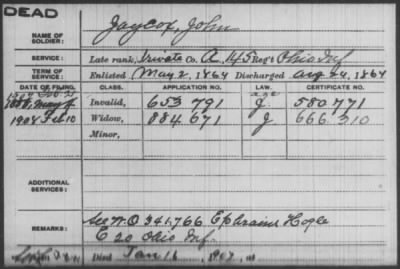 DEAD
NAME OF SOLDIER: Jaycox, John
SERVICE: Late rank, Private Co. A, 145 Reg't Ohio Inf
TERM OF SERVICE: Enlisted May 2, 1864 Discharged Aug 24, 1864
DATE OF FILING. CLASS. APPLICATION NO. LAW. CERTIFICATE NO.
1888, May Invalid, 653 791 J. 580 771
1908 Feb 10 Widow, 884 671 J 666 310
Minor,
ADDITIONAL SERVICES:
REMARKS: See W.O 341,766 Ephraim Hogle
E 20 Ohio Inf.
Died Jan 16, 1907,